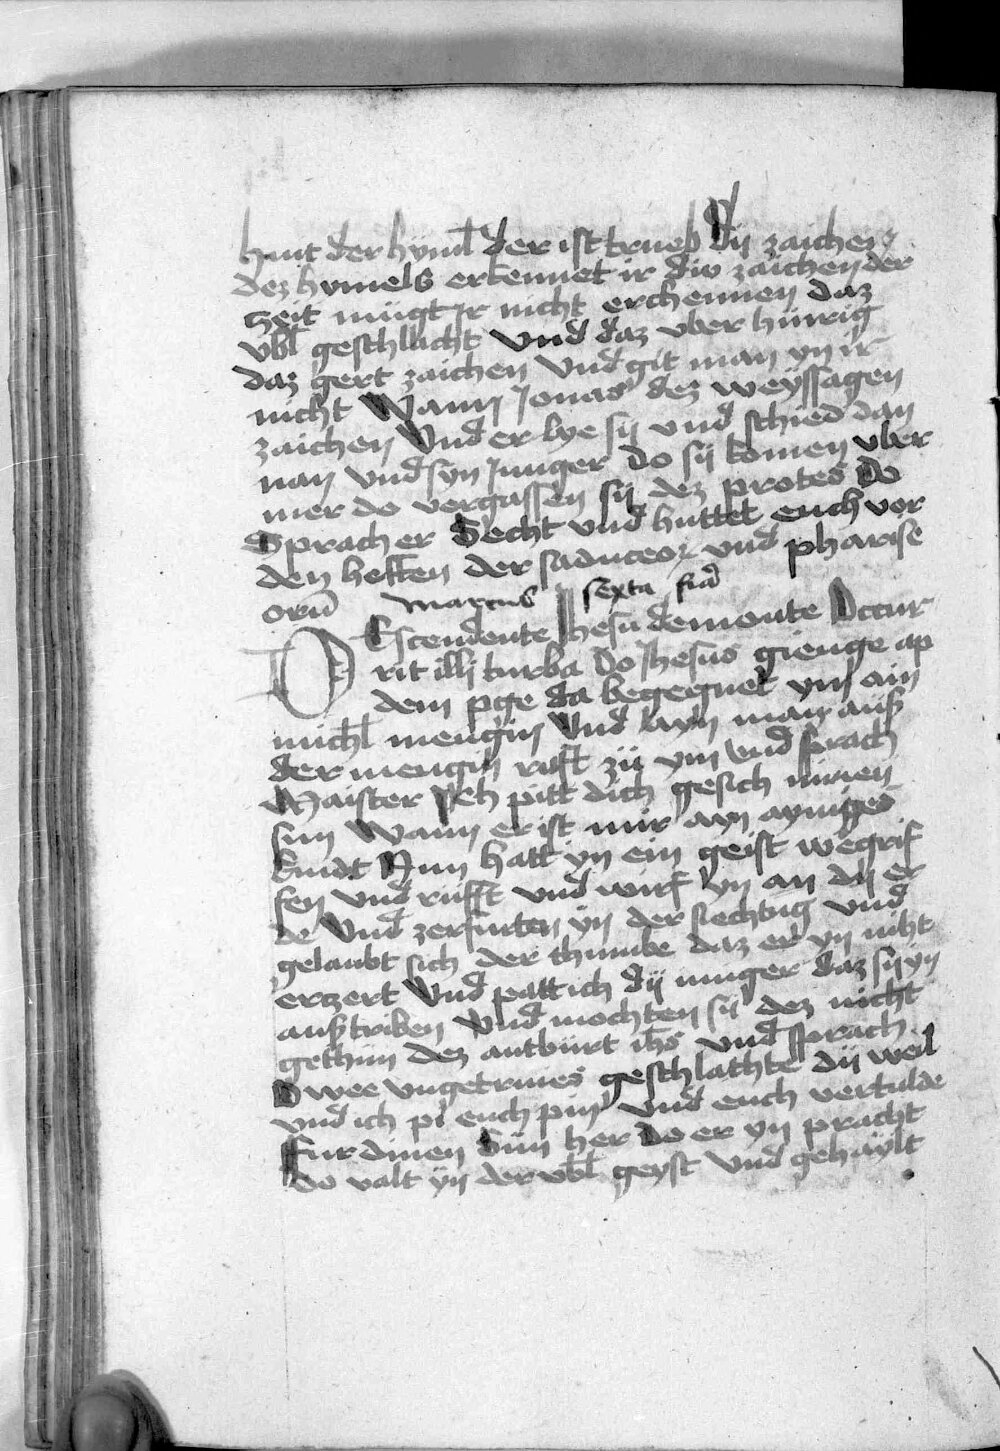 hiut der hyml der ist trueb Dij zaichen
dez hymels erkennet ir div zaichen der
zeit mügt Ir nicht erchennen daz
vbl geschlächt Vnd daz vber hürig
daz gert zaichen Vnd git man yn ir
nicht Wann Jonas dez weyssagen
zaichen Vnd er lye sij vnd schied dan
nan vnd syn Junger Do sij komen vber
mer do vergassen sij dez protes Do
Sprach er Secht vnd huttet euch vor
den heffen der saduceor vnd pharise
orū Marcus sexta fia
DEscendente Jhesu demonte Occur
rit illi turba Do Jhesus gienge ap
dem pge da begegnet ym ain
michl mengin Vnd ayn man auß
der mengin rüft zü ym vnd sprach
Maister Ich pitt dich gesich minen
sun Wann er ist mir ayn ayniges
kindt Nun hatt yn ein geist wegrif
fen vnd rüfft vnd wirf yn an dij er
de Vnd zerfürten yn der siechtug vnd
gelaubt sich der thumbe daz er yn niht
erczert Vnd patt ich dij iunger daz sij yn
austriben Vnd mochten sij dez nicht
gethun dez antbürt ihs vnd sprach
O wee vngetriues geschlächte dij weil
vnd ich pl euch pin Vnd euch vertulde
Für dinen Sun her Do er yn pracht
do valt yn der vbl geyst Vnd gehaylt